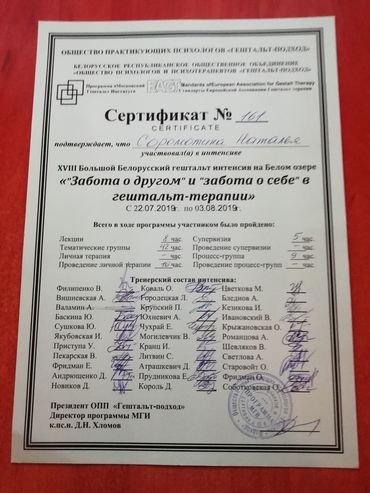 ОБЩЕСТВО ПРАКТИКУЮЩИХ ПСИХОЛОГОВ «ГЕШТАЛЬТ-ПОДХОД»
БЕЛОРУССКОЕ РЕСПУБЛИКАНСКОЕ ОБЩЕСТВЕННОЕ ОБЪЕДИНЕНИЕ
«ОБЩЕСТВО ПСИХОЛОГОВ И ПСИХОТЕРАПЕВТОВ «ГЕШТАЛЬТ-ПОДХОД»
Программа «Московский Гештальт Института
EAGT
Standards of European Association for Gestalt Therapy
Стандарты Европейской Ассоциации Гештальт терапии
Сертификат № 161
CERTIFICATE
подтверждает, что Соромотина Наталья
участвовал(а) в интенсиве
XVIII Большой Белорусский гештальт интенсив на Белом озере
«"Забота о другом" и "забота о себе" в
гештальт-терапии»
С 22.07.2019г. по 03.08.2019г.
Всего в ходе программы участником было пройдено:
Лекции 8 час. Супервизия 5 час.
Тематические группы 42 час. Проведение супервизии – час.
Личная терапия – час. Процесс-группа 9 час.
Проведение личной терапии 10 час. Проведение процесс-групп – час.
Тренерский состав интенсива:
Филипенко В. Коваль О. Цветкова М.
Вишневская А. Городецкая Л. Бледнов А.
Валамин А. Крупский П. Кезикова И.
Баскина Ю. Юхневич А. Ивановский В.
Сушкова Ю. Чухрай Е. Крыжановская О.
Якубовская И. Могилевчик В. Романцова А.
Приступа У. Кранц И. Шевляков В.
Пекарская В. Литвин С. Светлова А.
Фридман Е. Атрашкевич Д. Старовойт О.
Андрющенко Д. Прудникова Е. Фридман О.
Новиков Д. Король Д. Соботковская О.
Президент ОПП «Гештальт-подход»
Директор программы МГИ
к.пс.н. Д.Н. Хломов